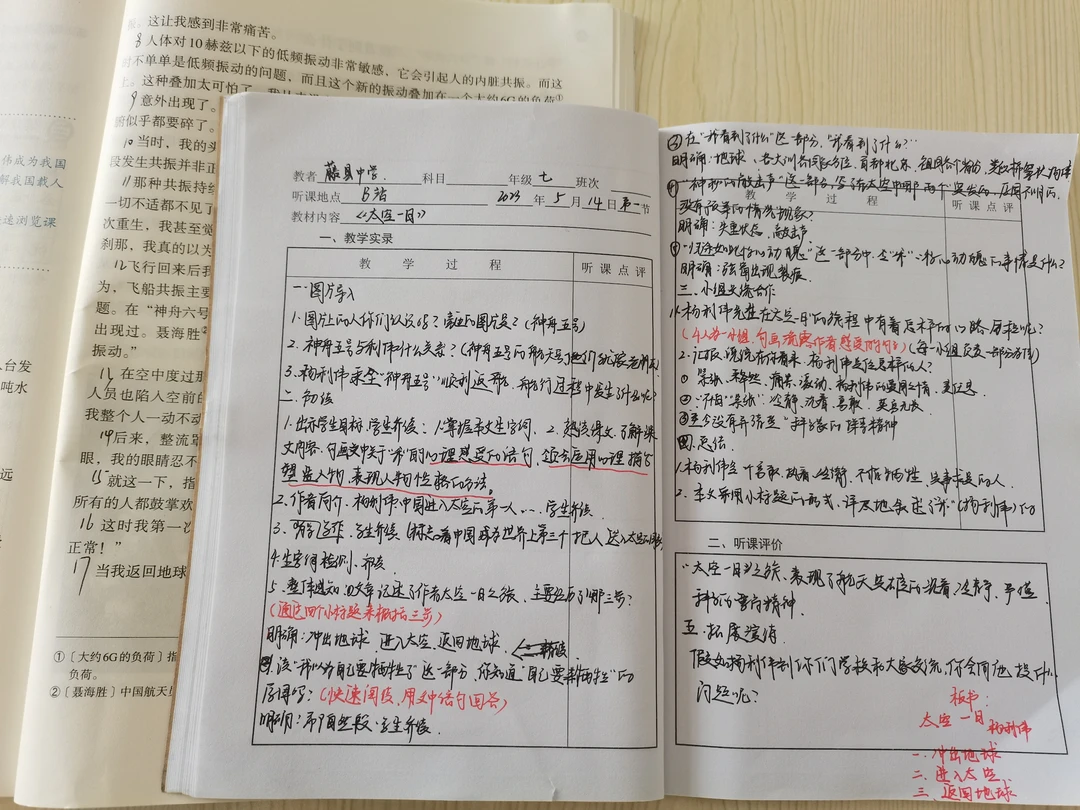 这让我感到非常痛苦。
8 人体对10赫兹以下的低频振动非常敏感、它会引起人的内脏共振。而这
不单单是低频振动的问题，而且这个新的振动叠加在一个大约6G的负荷①
这种叠加太可怕了
9 意外出现了。
似乎都要碎了。
10 当时，我的
段发生共振并非
11 那种共振持续
一切不适都不见了
次重生，我甚至觉
刹那，我真的以为
12 飞行回来后我
为，飞船共振主要
题。在“神舟六号
出现过。聂海胜②
振动。”
在空中度过那
人员也陷入空前的
我整个人一动不动
14 后来，整流罩
眼，我的眼睛忍不
15 就这一下，指
所有的人都鼓掌欢
16 这时我第一次
正常！”
17 当我返回地球
①〔大约6G的负荷〕指
负荷。
②〔聂海胜〕中国航天
伟成为我国
解我国载人
速浏览课
人台发
吨水
远
教者 藤县中学 科目 年级 七 班次
听课地点 2023 年 5 月 14 日 第一 节
教材内容 《太空一日》
一、教学实录
教 学 过 程 听课点评
一、图片导入
1. 图片上的人你们认识吗？背后的图片是？（神舟五号）
2. 神舟五号与杨利伟什么关系？
3. 杨利伟乘坐“神舟五号”顺利返航，航行过程中发生了什么呢？
二、初读
1. 出示学生目标，学生齐读：1. 掌握本文生字词、2. 熟读课文、了解课
文内容、勾画文中关于“我”的心理感受的语句，体会运用心理描写
塑造人物，表现人物性格的方法。
2. 作者简介、杨利伟，中国进入太空的第一人…、学生齐读
3. 写作、学生齐读（标志着中国成为世界上第三个把人送入太空的国家
4. 生字词检测、齐读
5. 整体感知：文章记述了作者太空一日之旅、主要经历了哪三步？
（通过四个小标题来概括三步）
明确：冲出地球 进入太空 返回地球
读“我以为自己要牺牲了”这一部分，你知道“自己要牺牲”的
原因吗？（快速阅读，用文中语句回答）
明确：自然段、学生齐读
③ 在“我看到了什么”这一部分，“我看到了什么？”
明确：地球、各大洲各国家方位、首都北京、祖国各个省份
④ “神秘的敲击声”这一部分，写了太空中的两个突发的、原因不明的、
教 学 过 程 听课点评
没有结果的情况现象？
明确：失重状态、敲击声
“归途如此惊心动魄”这一部分中，令“我”惊心动魄的事情是什么？
明确：舷窗出现裂痕
三、小组交流合作
1. 杨利伟先生在“太空一日”的旅程中有着怎样的心路历程呢？
（4人为一小组，勾画流露作者感受的句子）（每一小组负责一部分內容）
2. 说说在你看来，杨利伟是位怎样的人？
① 紧张、痛苦、激动、杨利伟的真实心情
② 冷静、沉着、勇敢、英勇无畏
科学家的严谨精神
四、总结
1. 杨利伟是一个勇敢、执着、冷静、不怕牺牲、实事求是的人
2. 本文采用小标题的形式、详尽地叙述了“我”（杨利伟）的
二、听课评价
“太空一日”之旅、表现了航天英雄的沉着、冷静、严谨、
科学的宝贵精神
五、拓展演练
假如杨利伟到你们学校和大家交流，你会向他提什么
问题呢？
板书：
太空一日
杨利伟
一、冲出地球
二、进入太空
三、返回地球